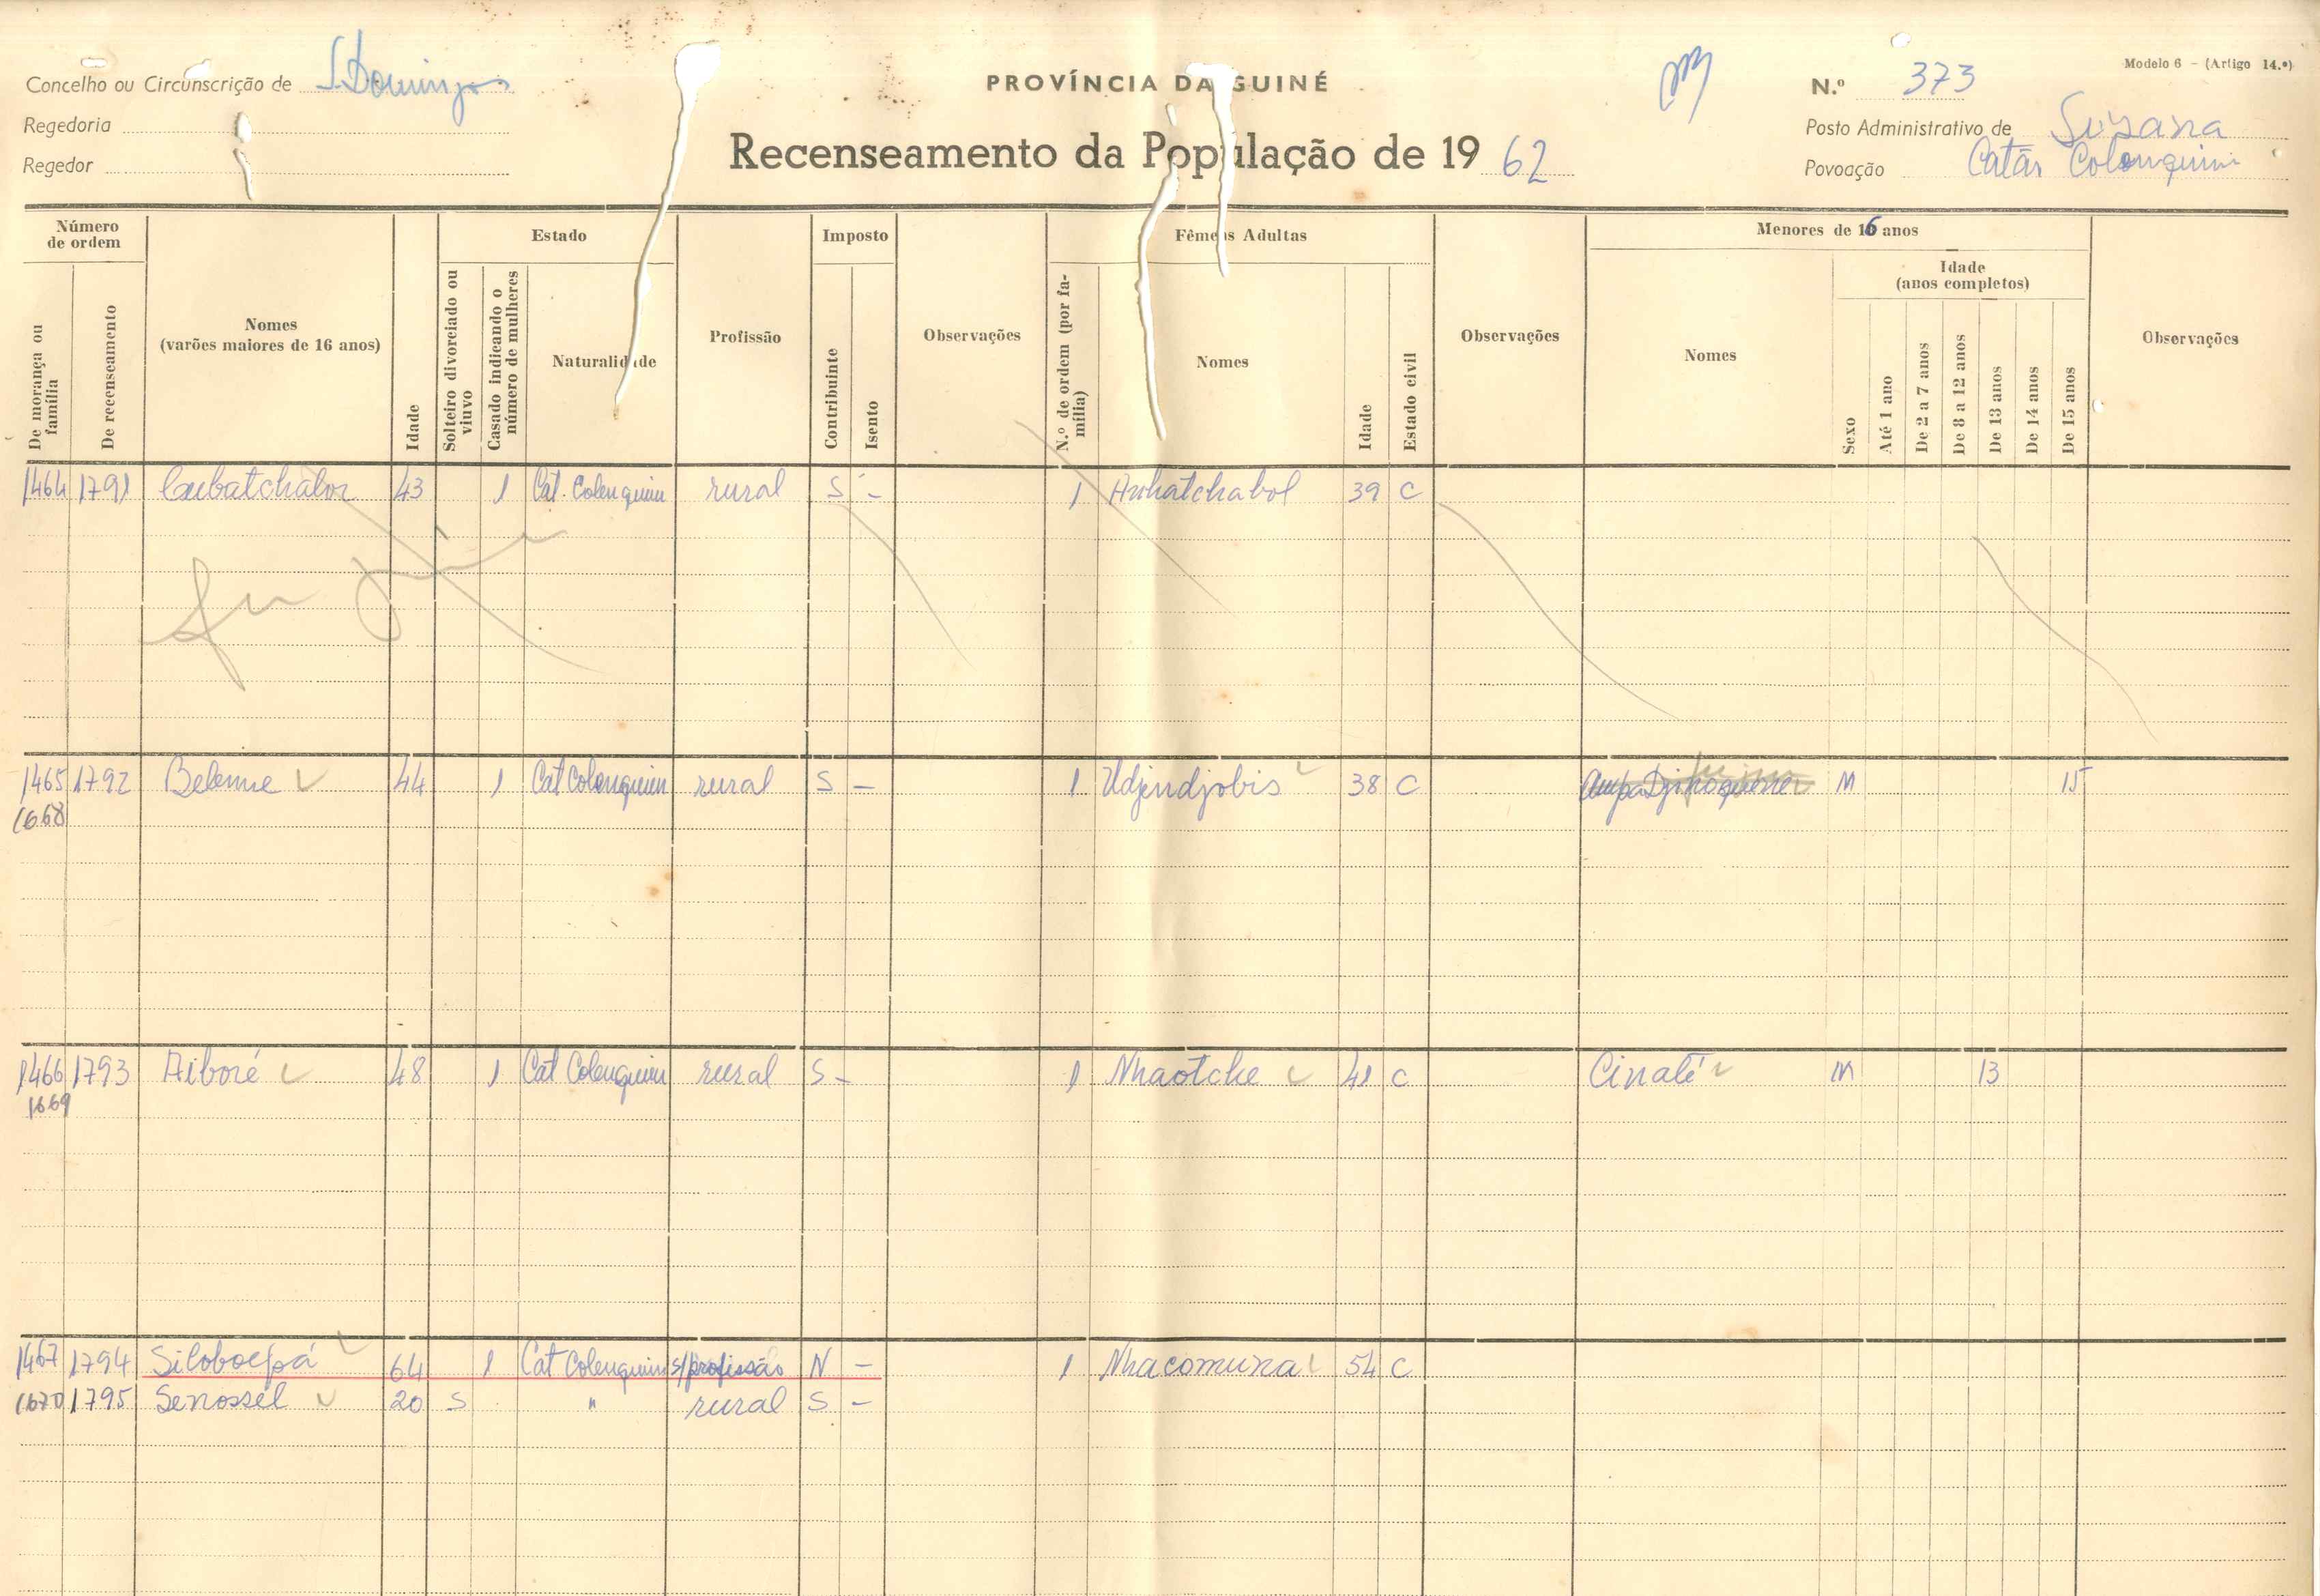 Modelo 6 - (Artigo 14.º)
Concelho ou Circunscrição de S. Domingos
PROVÍNCIA DA GUINÉ
N.º 373
Regedoria
Posto Administrativo de Suzana
Regedor
Recenseamento da População de 1962
Povoação Catão Colenquim
Número de ordem
De morança ou família
De recenseamento
Nomes
(varões maiores de 16 anos)
Idade
Estado
Solteiro divorciado ou viuvo
Casado indicando o número de mulheres
Naturalidade
Profissão
Imposto
Contribuinte
Isento
Observações
Fêmeas Adultas
N.º de ordem (por família)
Nomes
Idade
Estado civil
Observações
Menores de 16 anos
Nomes
Sexo
Idade
(anos completos)
Até 1 ano
De 2 a 7 anos
De 8 a 12 anos
De 13 anos
De 14 anos
De 15 anos
Observações
1464 1791 43 1 Cat. Colenquim rural S - 1 39 C
1465 1792 Belenne 44 1 Cat Colenquim rural S - 1 Udjendjobis 38 C M 15
1668
1466 1793 Aiboré 48 1 Cat Colenquim rural S - 1 Nhaotche 41 C Cinalé M 13
1669
1467 1794 64 1 Cat Colenquim s/profissão N - 1 Nhacomuna 54 C
1670 1795 Senossel 20 S " rural S -